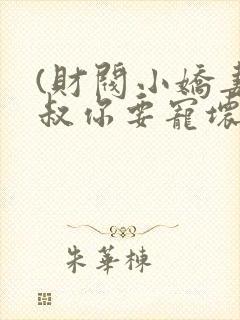 (財閥小嬌妻
叔你要寵壞
朱華棟